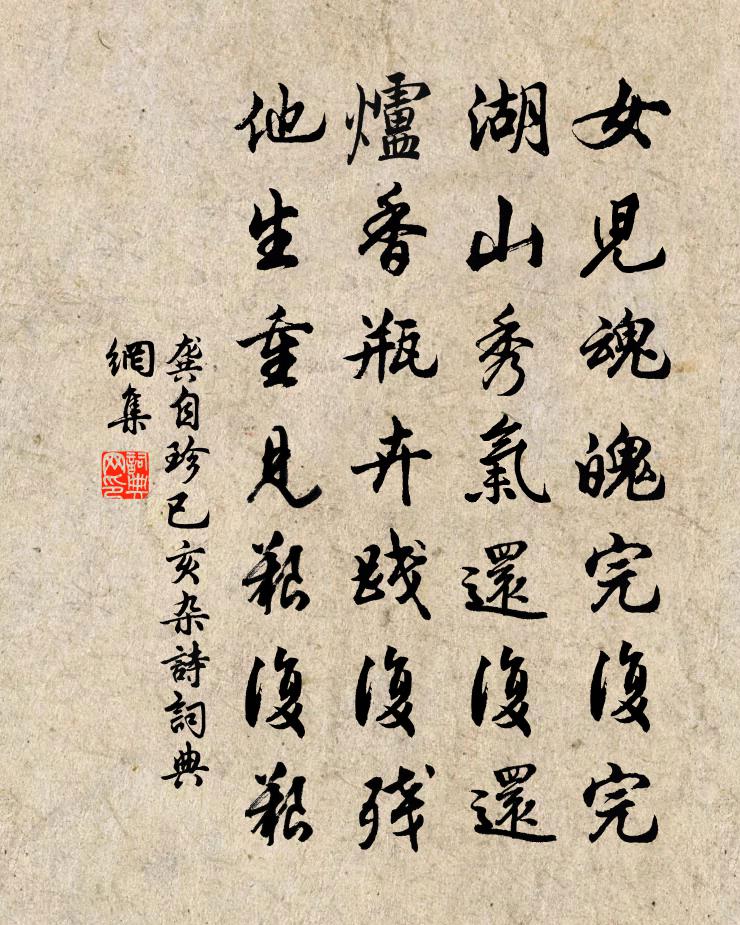 女兒魂魄完復完
湖山秀氣還復還
爐香瓶卉踐復殘
他生重見艱復艱
龔自珍已亥杂詩詞典
網集
詞典
网印